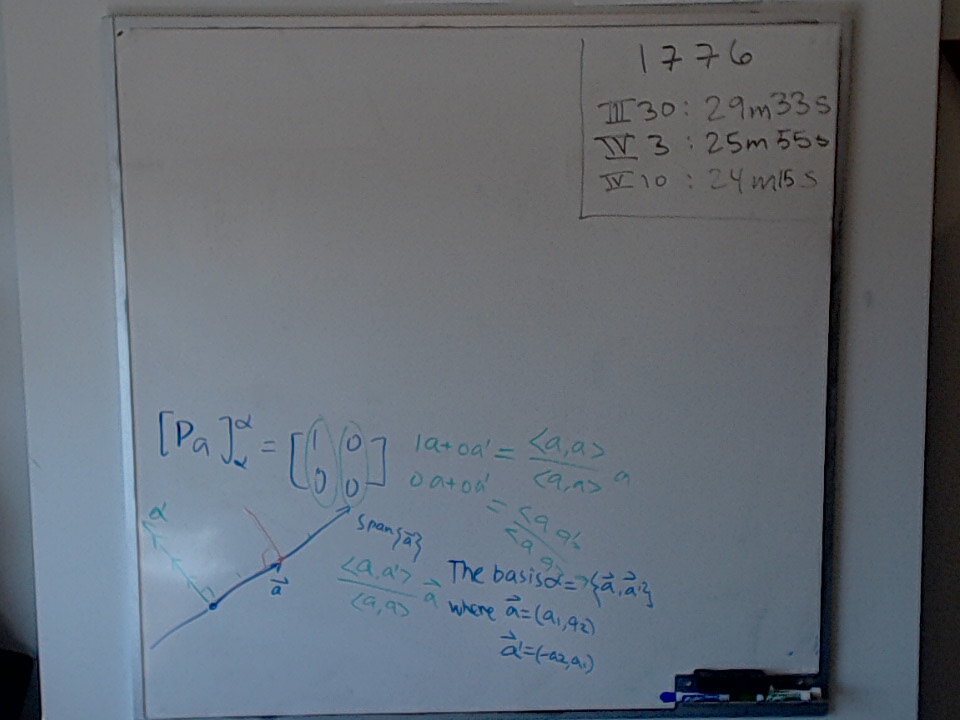 1776
III 30: 29m33s
IV 3: 25m55s
IV 10: 24m15s
[Pa]αα = [1 0
0 0]
1a+0a' = <a,a>/<a,a> a
0a+0a' = <a a'>/<a a>
α
span{a⃗}
a⃗
<a,a'>/<a,a> a⃗
The basis α = {a⃗,a⃗'}
where a⃗=(a₁,a₂)
a⃗'=(-a₂,a₁)